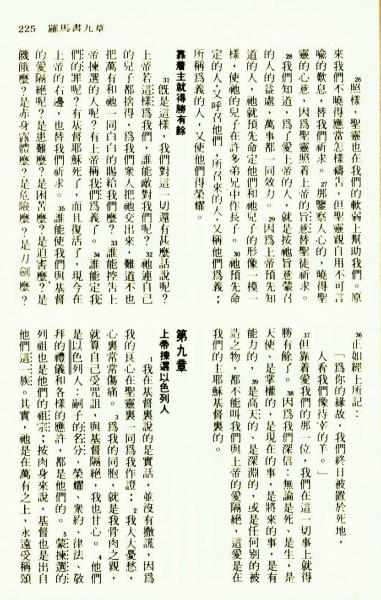 225　羅馬書九章
26照樣，聖靈也在我們的軟弱上幫助我們。原
來我們不曉得應當怎樣禱告，但聖靈親自用不可言
喻的歎息，替我們祈求。27那鑒察人心的，曉得聖
靈的心意，因為聖靈照着上帝的旨意替聖徒祈求。
28我們知道，為了愛上帝的人，就是按祂旨意蒙召
的人的益處，萬事都一同效力。29因為上帝預先知
道的人，祂就預先命定他們和祂兒子的形像一模一
樣，使祂的兒子在許多弟兄中作長子。30祂預先命
定的人，又呼召他們；所召來的人，又稱他們為義；
所稱為義的人，又使他們得榮耀。
靠着主就得勝有餘
31既是這樣，我們對這一切還有甚麼話說呢？
上帝若這樣為我們，誰能敵對我們呢？32祂連自己
的兒子都捨得，為我們眾人把祂交出來，難道不也
把萬有和祂一同白白的賜給我們麼？33誰能控告上
帝揀選的人呢？有上帝稱我們為義了。34誰能定我
們的罪呢？有基督耶穌死了，而且復活了，現今在
上帝的右邊，也替我們祈求。35誰能使我們與基督
的愛隔絕呢？是患難麼？是困苦麼？是迫害麼？是
饑餓麼？是赤身露體麼？是危險麼？是刀劍麼？
36正如經上所記：
「為你的緣故，我們終日被置於死地，
人看我們像待宰的羊。」
37但靠着愛我們的那一位，我們在這一切事上就得
勝有餘了。38因為我們深信：無論是死、是生，是
天使、是掌權的，是現在的事、是將來的事，是有
能力的，39是高天的、是深淵的，或是任何別的被
造之物，都不能叫我們與上帝的愛隔絕，這愛是在
我們的主耶穌基督裏的。
第九章
上帝揀選以色列人
1我在基督裏說的是實話，並沒有撒謊，因為
我的良心在聖靈裏一同為我作證；2我大大憂愁，
心裏常常傷痛。3為我的同胞，就是我骨肉之親，
就算自己受咒詛，與基督隔絕，我也甘心。4他們
是以色列人：嗣子的名分、榮耀、眾約、律法、敬
拜的禮儀和各樣的應許，都是他們的。5蒙揀選的
列祖也是他們的祖宗；按肉身來說，基督也是出自
他們這一族。其實，祂是在萬有之上，永遠受稱頌